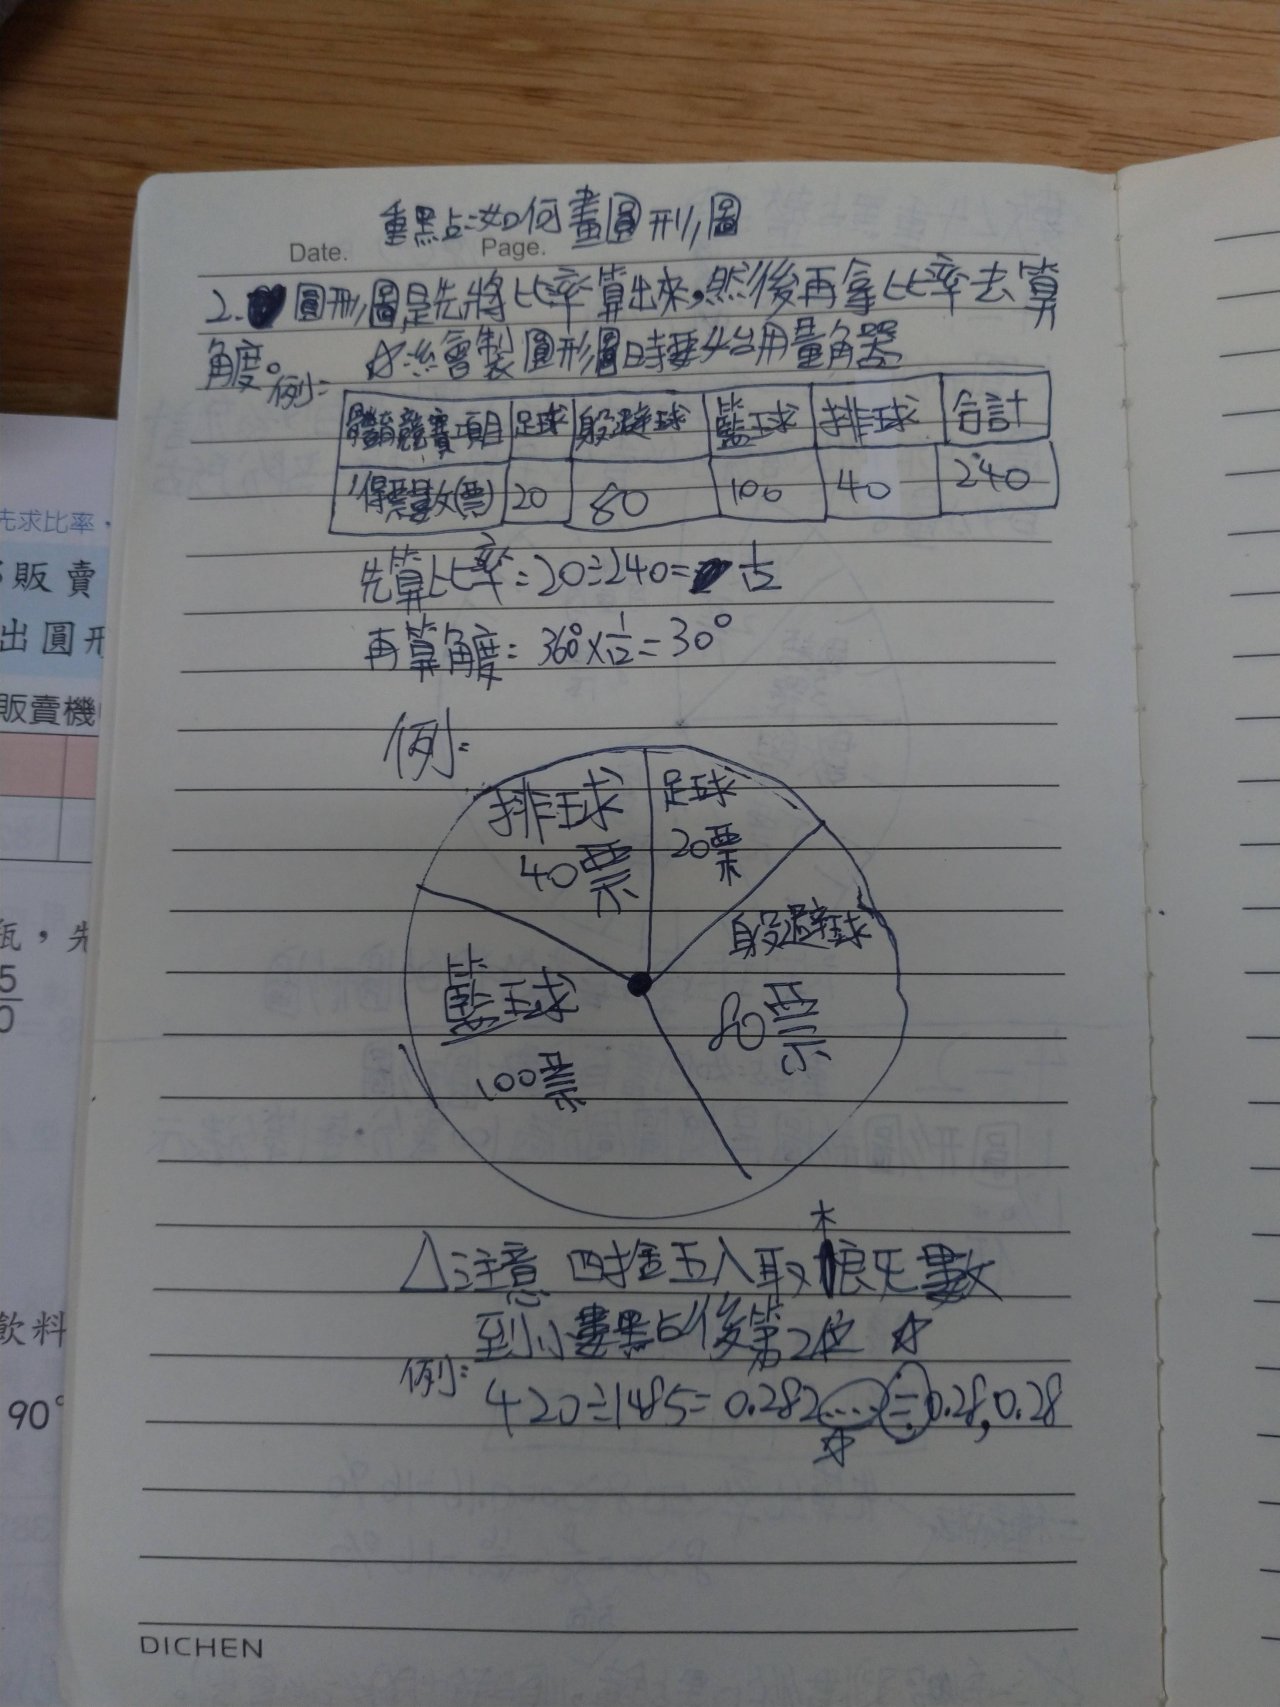 重點:如何畫圓形圖
Date. Page.
2. 圓形圖是先將比率算出來,然後再拿比率去算
角度。 ☆繪製圓形圖時要始用量角器
例:
體育競賽項目 足球 躲避球 籃球 排球 合計
得票數(票) 20 80 100 40 240
先算比率:20÷240= 1/12
再算角度:360°×1/12=30°
例:
排球 足球
40票 20票
躲避球
籃球 80票
100票
△注意 四捨五入取概元數
到小數點後第2位 ☆
例:
420÷1485=0.282……≒0.28,0.28
☆
DICHEN
先求比率,
販賣
出圓形
販賣機
瓶,先
5
0
飲料
90°